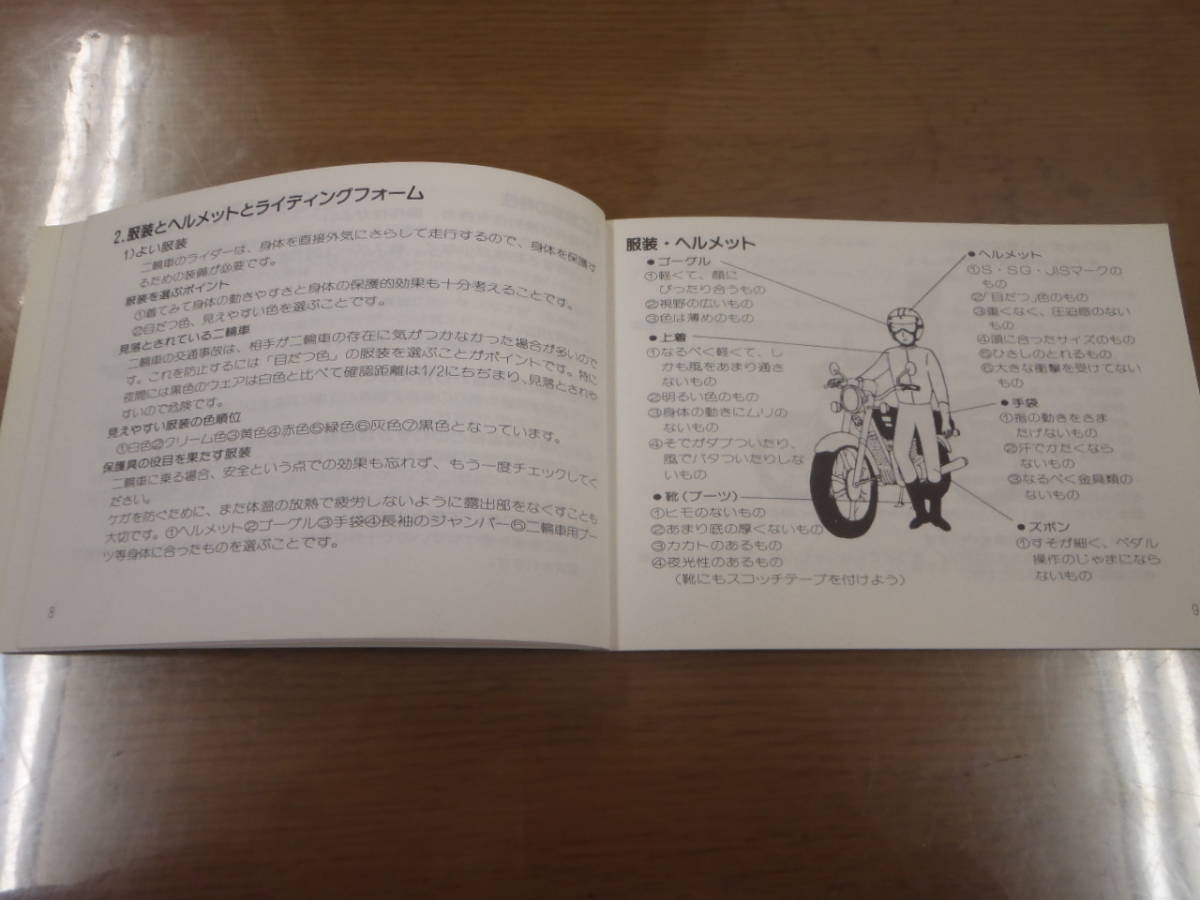 2.服装とヘルメットとライディングフォーム
1)よい服装
二輪車のライダーは、身体を直接外気にさらして走行するので、身体を保護す
るための装備が必要です。
服装を選ぶポイント
①着てみて身体の動きやすさと身体の保護的効果も十分考えることです。
②目だつ色、見えやすい色を選ぶことです。
見落とされている二輪車
二輪車の交通事故は、相手が二輪車の存在に気がつかなかった場合が多いので
す。これを防止するには「目だつ色」の服装を選ぶことがポイントです。特に
夜間には黒色のウェアは白色と比べて確認距離は1/2にちぢまり、見落とされや
すいので危険です。
見えやすい服装の色順位
①白色②クリーム色③黄色④赤色⑤緑色⑥灰色⑦黒色となっています。
保護具の役目を果たす服装
二輪車に乗る場合、安全という点での効果も忘れず、もう一度チェックしてく
ださい。
ケガを防ぐために、また体温の放熱で疲労しないように露出部をなくすことも
大切です。①ヘルメット②ゴーグル③手袋④長袖のジャンパー⑤二輪車用ブー
ツ等身体に合ったものを選ぶことです。
8
服装・ヘルメット
●ゴーグル
①軽くて、顔に
ぴったり合うもの
②視野の広いもの
③色は薄めのもの
●上着
①なるべく軽くて、し
かも風をあまり通さ
ないもの
②明るい色のもの
③身体の動きにムリの
ないもの
④そでがダブついたり、
風でバタついたりしな
いもの
●靴(ブーツ)
①ヒモのないもの
②あまり底の厚くないもの
③カカトのあるもの
④夜光性のあるもの
(靴にもスコッチテープを付けよう)
●ヘルメット
①S・SG・JISマークの
もの
②「目だつ」色のもの
③重くなく、圧迫感のない
もの
④頭に合ったサイズのもの
⑤ひさしのとれるもの
⑥大きな衝撃を受けてない
もの
●手袋
①指の動きをさま
たげないもの
②汗でかたくなら
ないもの
③なるべく金具類の
ないもの
●ズボン
①すそが細く、ペダル
操作のじゃまになら
ないもの
9